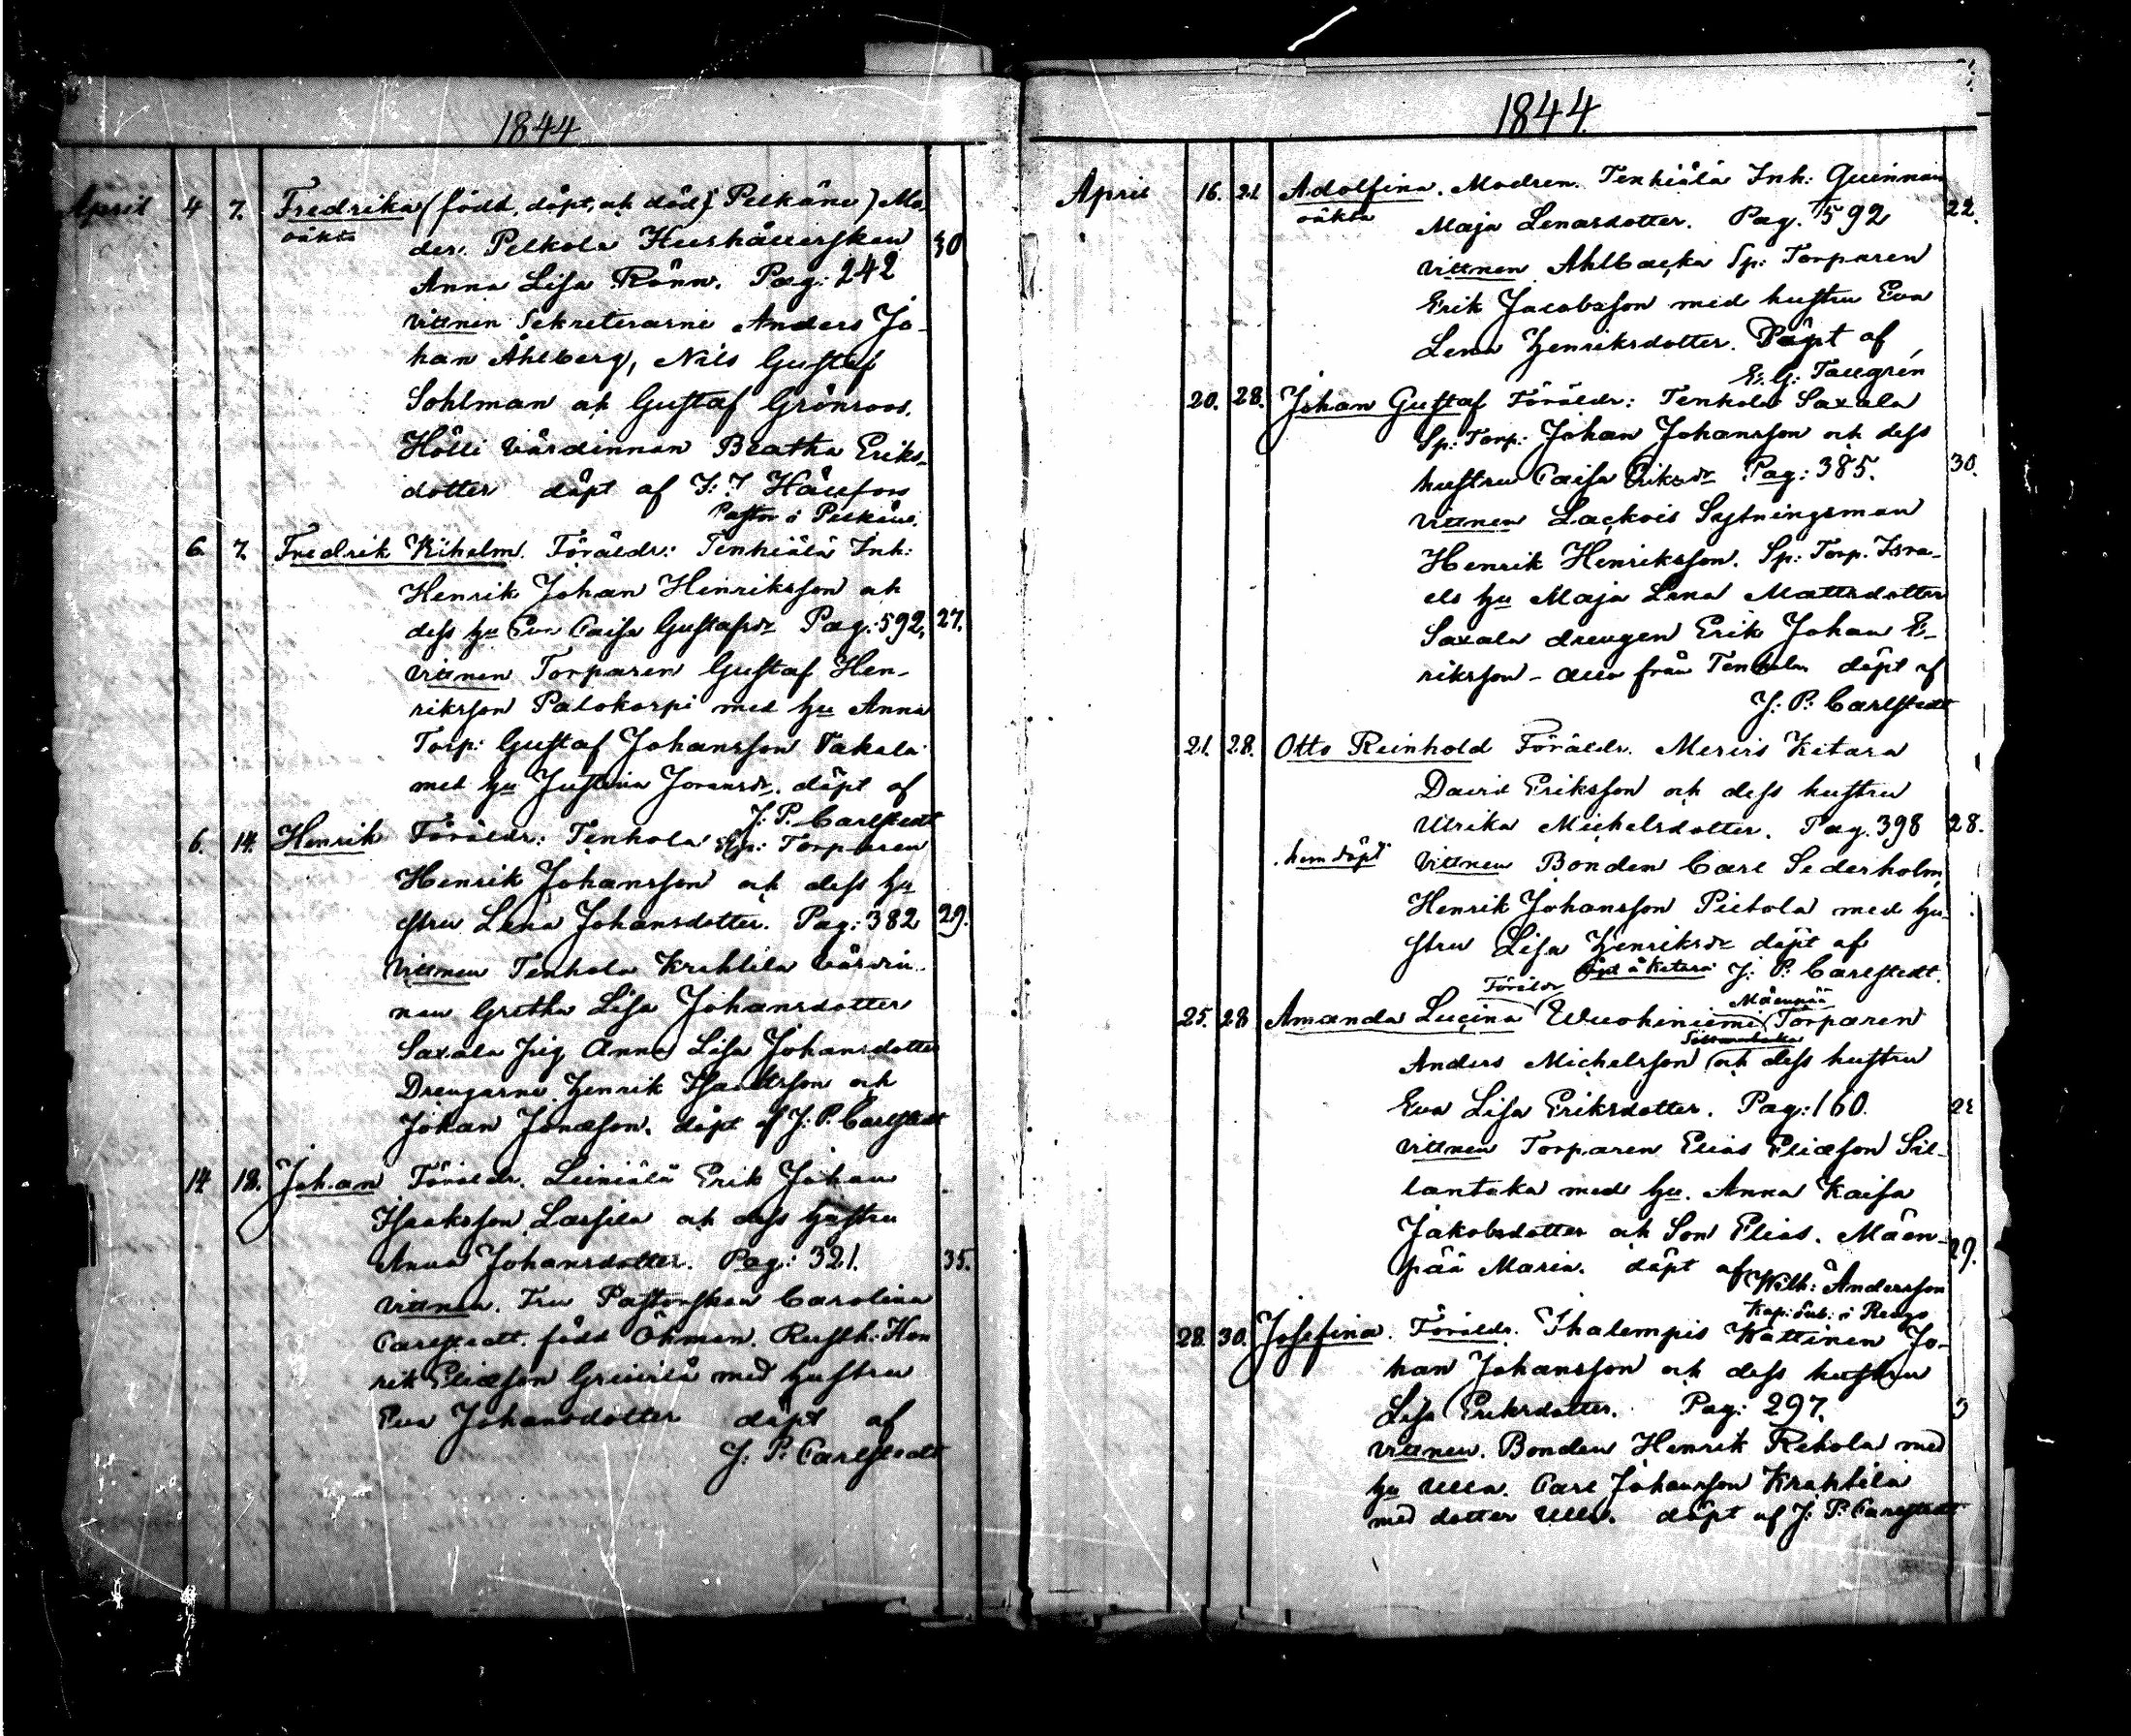 1844
April 4 7. Fredrika (född, döpt, och död i Pelkäne) Mo-
oäkta der. Pelkola Hushållerskan 30
Anna Lisa Rönn. Pag: 242
vittnen Sekreterarne Anders Jo-
han Åhlberg, Nils Gustaf
Sohlman och Gustaf Grönroos.
Hölli Värdinnan Beatha Eriks-
dotter döpt af
Pastor i Pelkäne.
6. 7. Fredrik Vilhelm. Föräldr: Tenhiälä Inh:
Henrik Johan Henriksson och
dess hu Eva Caisa Gustafsdr Pag: 592, 27.
vittnen Torparen Gustaf Hen-
riksson Palokorpi med hu Anna
Torp: Gustaf Johansson Takala
med hu Justina döpt af
J: P. Carlstedt
6. 14. Henrik Föräldr: Tenhola Sp: Torparen
Henrik Johansson och dess hu
stru Lena Johansdotter. Pag: 382 29.
vittnen Tenhola Krehlila värdin-
nan Gretha Lisa Johansdotter
Saxala Pig Anna Lisa Johansdotter
Drengarne Henrik och
Johan Jonasson. döpt af J: P. Carlstedt
14 18. Johan Föräldr. Leiniälä Erik Johan
Isaksson Lassila och dess hustru
Anna Johansdotter. Pag: 321. 35.
vittnen. Fru Pastorskan Carolina
Carlstedt född Öhman. Rusth: Hen
rik Eliasson med hustru
Eva Johansdotter döpt af
J: P. Carlstedt
1844
April 16. 21 Adolfina. Modren. Tenhiälä Inh: Quinnan
oäkta Maja Lenasdotter. Pag. 592 22.
vittnen Ahlbacka Sp: Torparen
Erik Jacobsson med hustru Eva
Lena Henriksdotter. Döpt af
E: G: Tallgrén
20. 28. Johan Gustaf Föräldr: Tenhola Saxala
Sp: Torp: Johan Johansson och dess
hustru Caisa Eriksdr Pag: 385. 30.
vittnen Lackois Sytningsman
Henrik Henriksson. Sp: Torp. Isra-
els hu Maja Lena Mattsdotter
Saxala drengen Erik Johan E-
riksson - alla från Tenhola döpt af
J: P. Carlstedt
21. 28. Otto Reinhold Föräldr. Merois Ketara
David Eriksson och dess hustru
Ulrika Michelsdotter. Pag. 398 28.
hemdöpt vittnen Bonden Carl Sederholm,
Henrik Johansson Pietola med hu-
stru Lisa Henriksdr döpt af
J: P. Carlstedt.
Föräldr Mäenpää
25. 28 Amanda Lucina Wuohiniemi Torparen
Anders Michelsson och dess hustru
Eva Lisa Eriksdotter. Pag: 160.
vittnen Torparen Elias Eliasson Sil-
lantaka med hu. Anna Kaisa
Jakobsdotter och Son Elias. Mäen-
pää Maria. döpt af Wilh: Andersson
Kap: Sub: i Rengo
28. 30. Josefina. Föräldr. Ihalempis Wattinen Jo-
han Johansson och dess hustru
Lisa Eriksdotter. Pag: 297. 3
vittnen. Bonden Henrik Rekola med
hu Ulla. Carl Johansson Krehlila
med dotter Ulla. döpt af J: P. Carlstedt